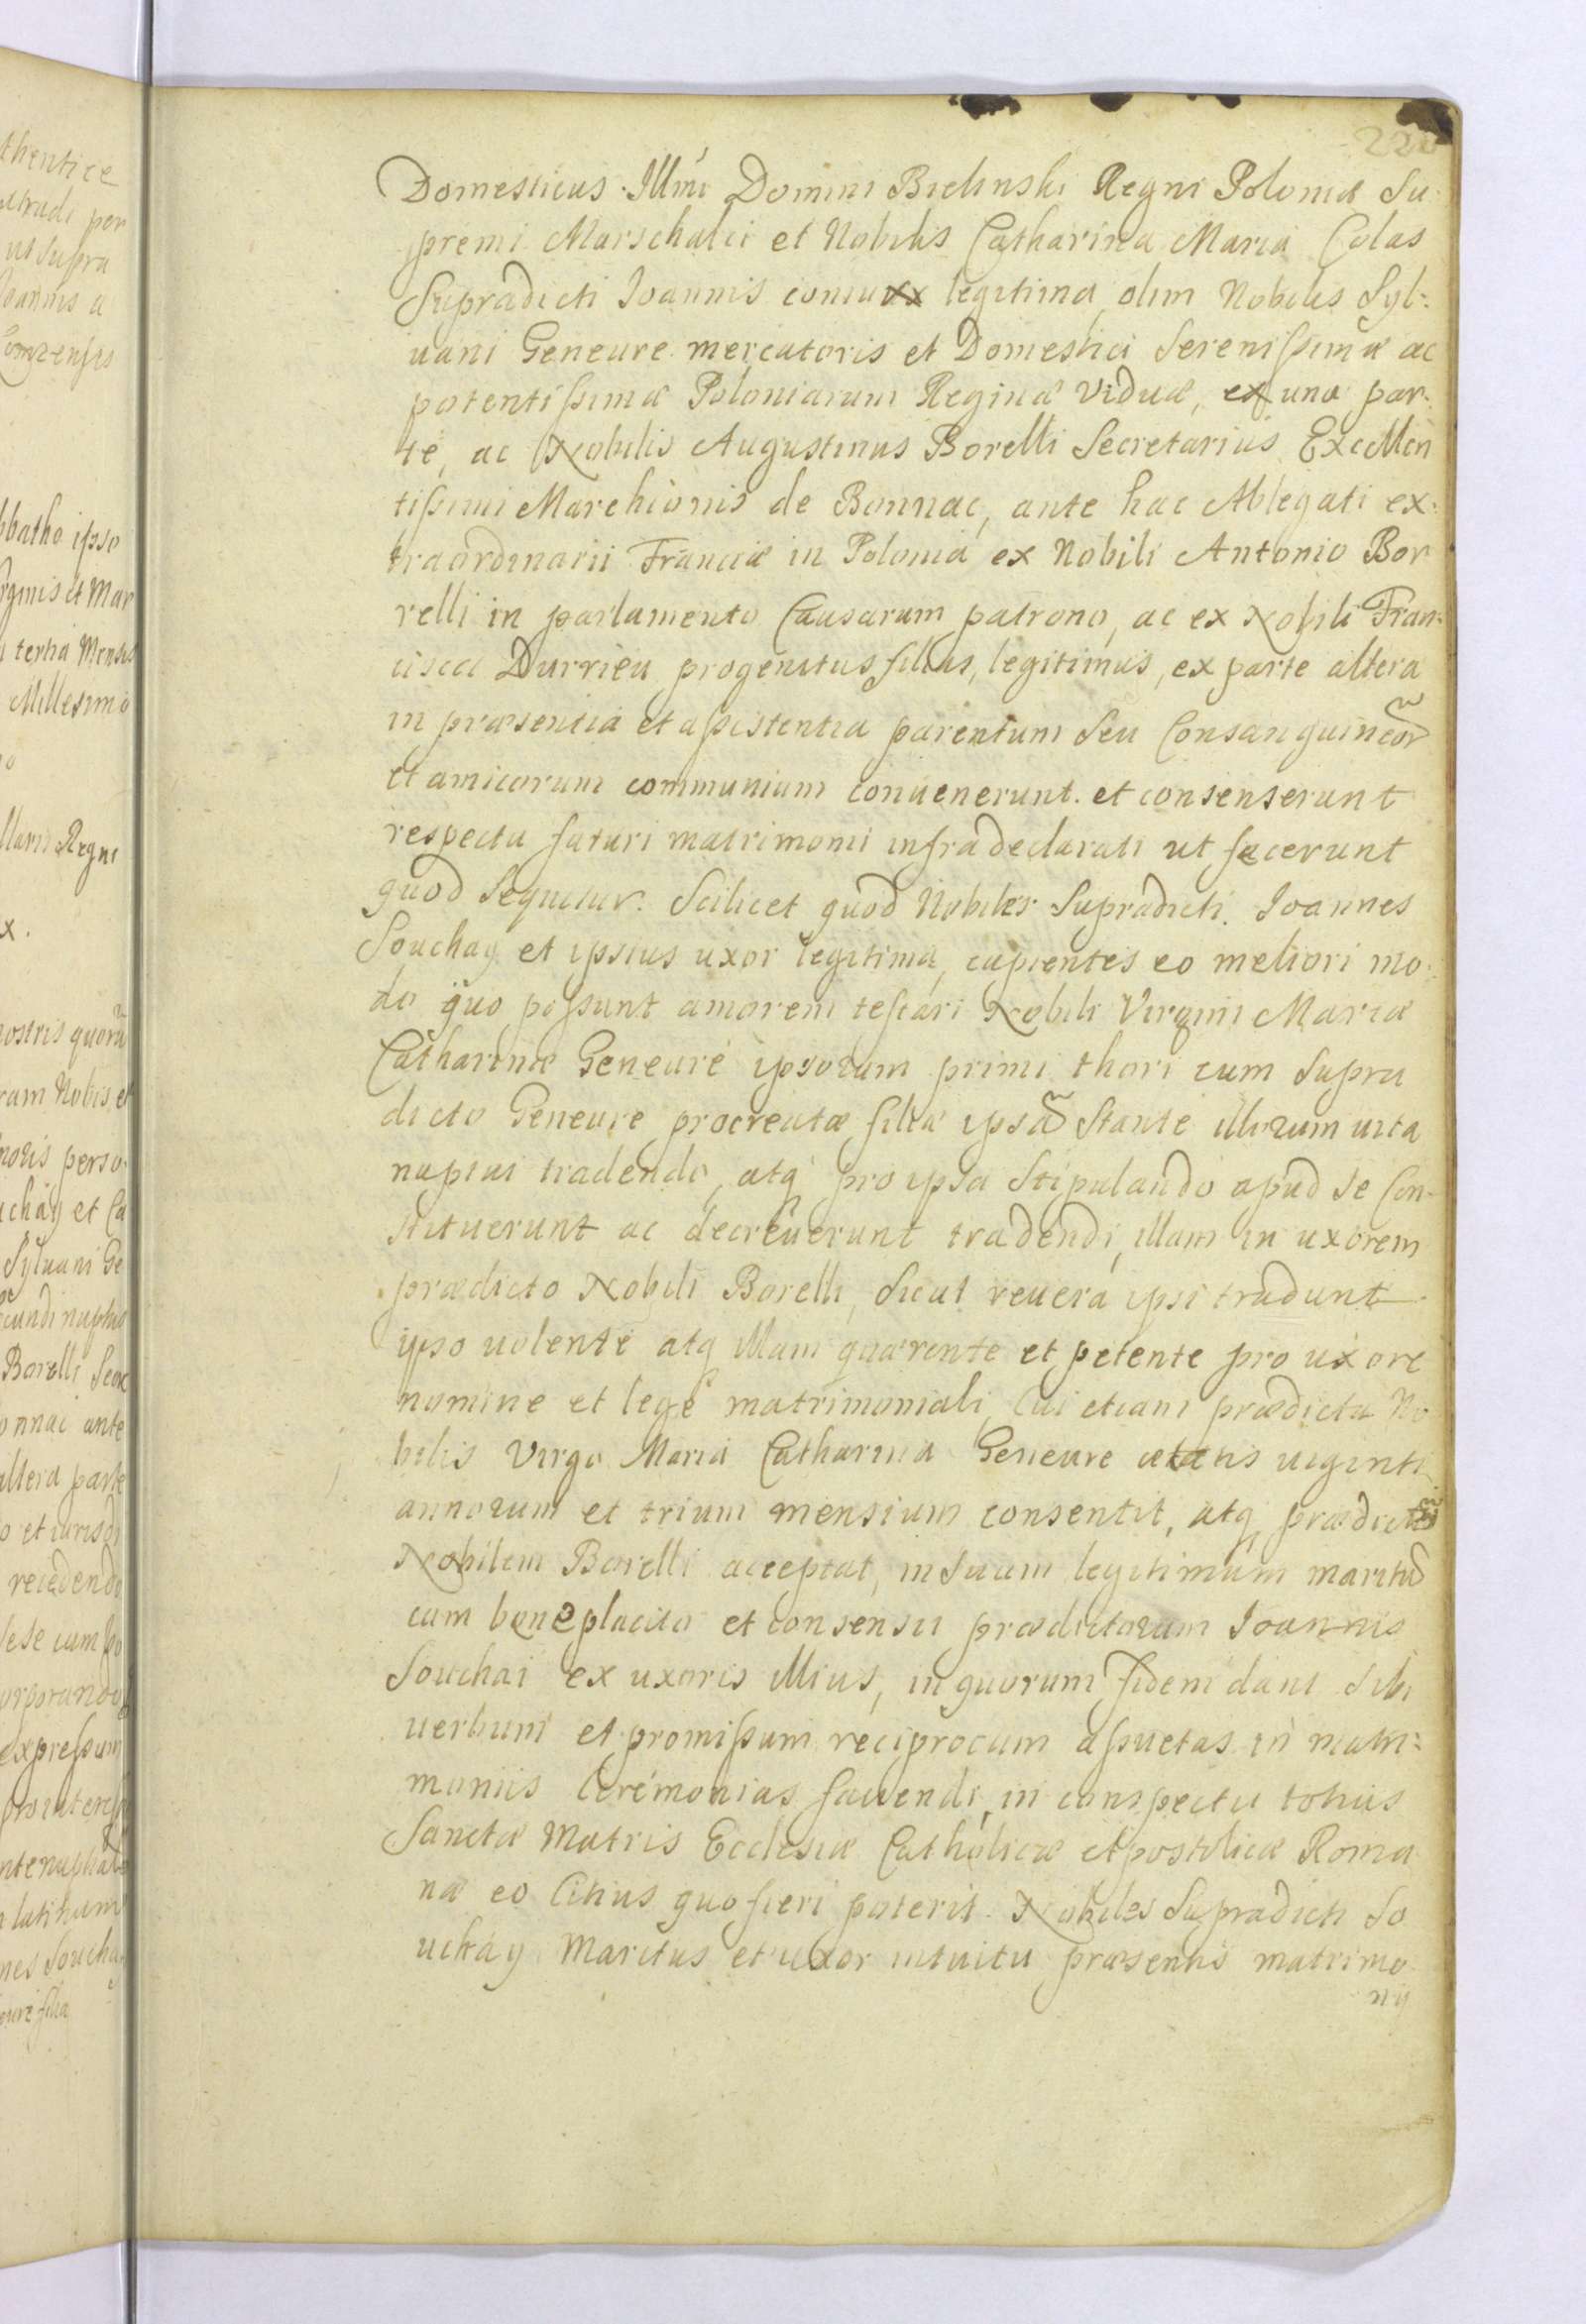 220
Domesticus Illmi Domini Bielinski Regni Poloniæ Su
premi Marschalci et Nobilis Catharina Maria Colas
Supradicti Joannis coniux legitima, olim Nobilis Syl:
uani Geneure mercatoris et Domestici Serenissimæ ac
potentissimæ Poloniarum Reginæ Viduæ, ex una par:
te, ac Nobilis Augustinus Borelli Secretarius Excellen
tissimi Marchionis de Bonnac, ante hac Ablegati ex:
traordinarii Franciæ in Polonia ex Nobili Antonio Bor
relli in parlamento Causarum patrono, ac ex Nobili Fran:
cisca Durrieu progenitus filius, legitimus, ex parte altera
in præsentia et assistentia parentum Seu Consanguineor̃
et amicorum communium conuenerunt. et consenserunt
respectu futuri matrimonii infradeclarati ut fecerunt
quod Sequitur. Scilicet quod Nobiles Supradicti Joannes
Souchay et ipsius uxor legitima, cupientes eo meliori mo:
do quo possunt amorem testari Nobili Virgini Mariæ
Catharinæ Geneure ipsorum primi thori cum Supra
dicto Geneure procreatæ filiæ ipsã Stante illorum uita
nuptui tradendo, atq pro ipsa Stipulando apud se Con-
stituerunt ac decreuerunt tradendi, illam in uxorem
prædicto Nobili Borelli, Sicut reuera ipsi tradunt
ipso uolente atq illam quærente et petente pro uxore
nomine et lege matrimoniali, Cui etiam prædicta No
bilis Virgo Maria Catharina Geneure ætatis uiginti
annorum et trium mensium consentit, atq prædictũ
Nobilem Borelli acceptat, in Suum legitimum maritũ
cum beneplacito et consensu prædictorum Joannis
Souchai ex uxoris illius, in quorum fidem dant Sibi
uerbum et promissum reciprocum assuetas in matri:
moniis Ceremonias faciendi, in conspectu totius
Sanctæ Matris Ecclesiæ Catholicæ Apostolicæ Roma
næ eo Citius quo fieri poterit. Nobiles Supradicti So
uchay Maritus et uxor intuitu præsentis matrimo
nij